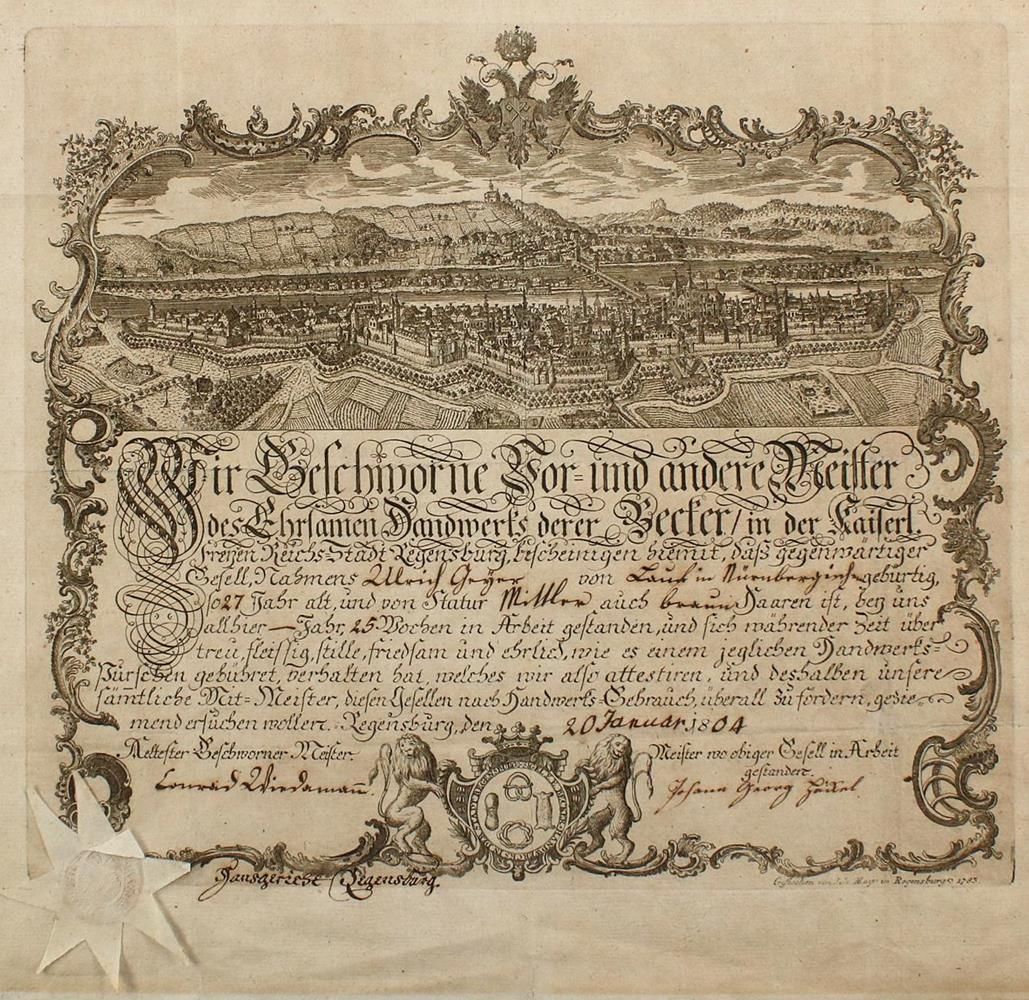 Wir Geschworne Vor- und andere Meister
des Ehrsamen Handwerks derer Becker/ in der Kaiserl.
freyen Reichs-Stadt Regensburg, bescheinigen hiemit, daß gegenwärtiger
Gesell, Nahmens Ulrich Geyer von Lauf in Nürnbergisch gebürtig,
so 27 Jahr alt, und von Statur Mittler auch braun Haaren ist, bey uns
allhier — Jahr, 25 Wochen in Arbeit gestanden, und sich während der Zeit über
treu, fleissig, stille, friedsam und ehrlich, wie es einem jeglichen Handwerks-
Purschen gebühret, verhalten hat, welches wir also attestiren, und deshalben unsere
sämtliche Mit-Meister, diesen Gesellen nach Handwerks-Gebrauch, überall zu fördern, gezie-
mend ersuchen wollen. Regensburg, den 20 Januar 1804
Aeltester Geschworner Meister.
Conrad Wiedamann
Meister wo obiger Gesell in Arbeit
gestanden.
Johann Georg
Hansgericht Regensburg.
gestochen von Mayr in Regensburg 1783.